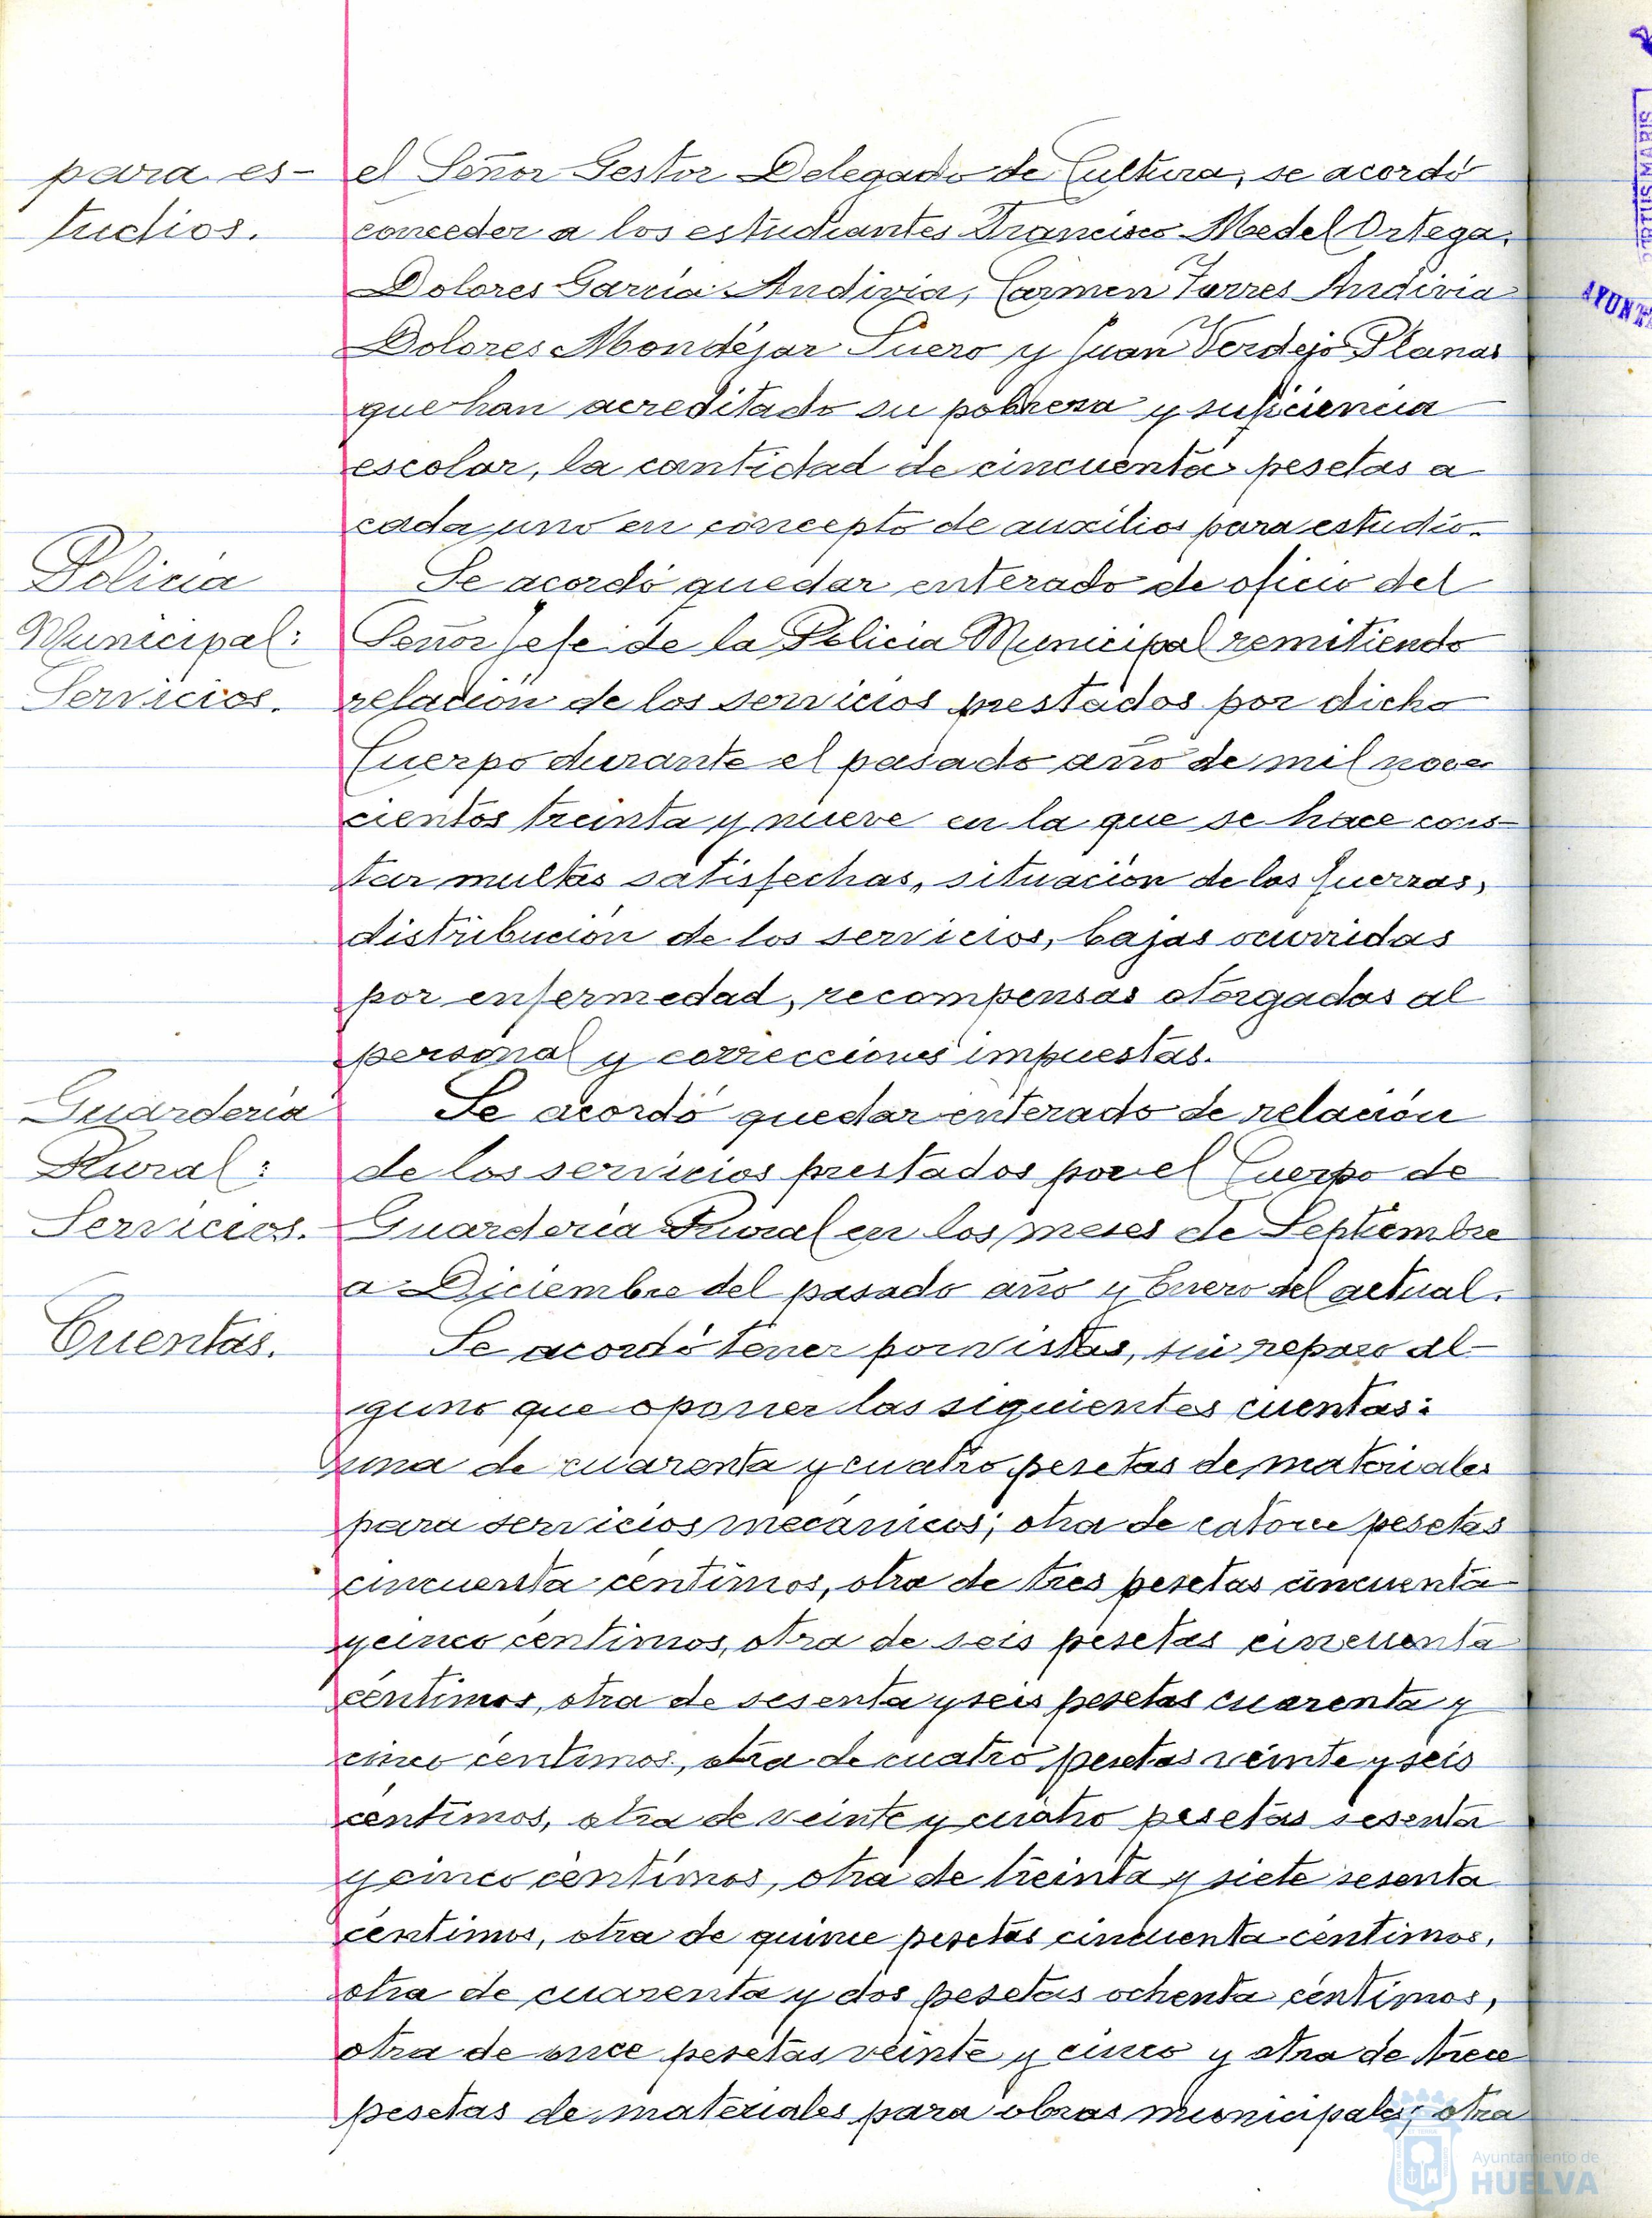 para es-
tudios.
el Señor Gestor Delegado de Cultura, se acordó
conceder a los estudiantes Francisco Medel Ortega,
Dolores García Andivia, Carmen Torres Andivia
Dolores Mondéjar Suero y Juan Verdejo Planas
que han acreditado su pobreza y suficiencia
escolar, la cantidad de cincuenta pesetas a
cada uno en concepto de auxilios para estudio.
Policia
Municipal:
Servicios.
Se acordó quedar enterado de oficio del
Señor Jefe de la Policia Municipal remitiendo
relación de los servicios prestados por dicho
Cuerpo durante el pasado año de mil nove-
cientos treinta y nueve en la que se hace cons-
tar multas satisfechas, situación de las fuerzas,
distribución de los servicios, bajas ocurridas
por enfermedad, recompensas otorgadas al
personal y correcciones impuestas.
Guardería
Rural:
Servicios.
Se acordó quedar enterado de relación
de los servicios prestados por el Cuerpo de
Guardería Rural en los meses de Septiembre
a Diciembre del pasado año y Enero del actual.
Cuentas.
Se acordó tener por vistas, sin reparo al-
guno que oponer las siguientes cuentas:
una de cuarenta y cuatro pesetas de materiales
para servicios mecánicos; otra de catorce pesetas
cincuenta centimos, otra de tres pesetas cincuenta
y cinco centimos, otra de seis pesetas cincuenta
centimos, otra de sesenta y seis pesetas cuarenta y
cinco centimos, otra de cuatro pesetas veinte y seis
centimos, otra de veinte y cuatro pesetas sesenta
y cinco centimos, otra de treinta y siete sesenta
centimos, otra de quince pesetas cincuenta centimos,
otra de cuarenta y dos pesetas ochenta centimos,
otra de once pesetas veinte y cinco y otra de trece
pesetas de materiales para obras municipales; otra
PORTUS MARIS
AYUNT
Ayuntamiento de
HUELVA